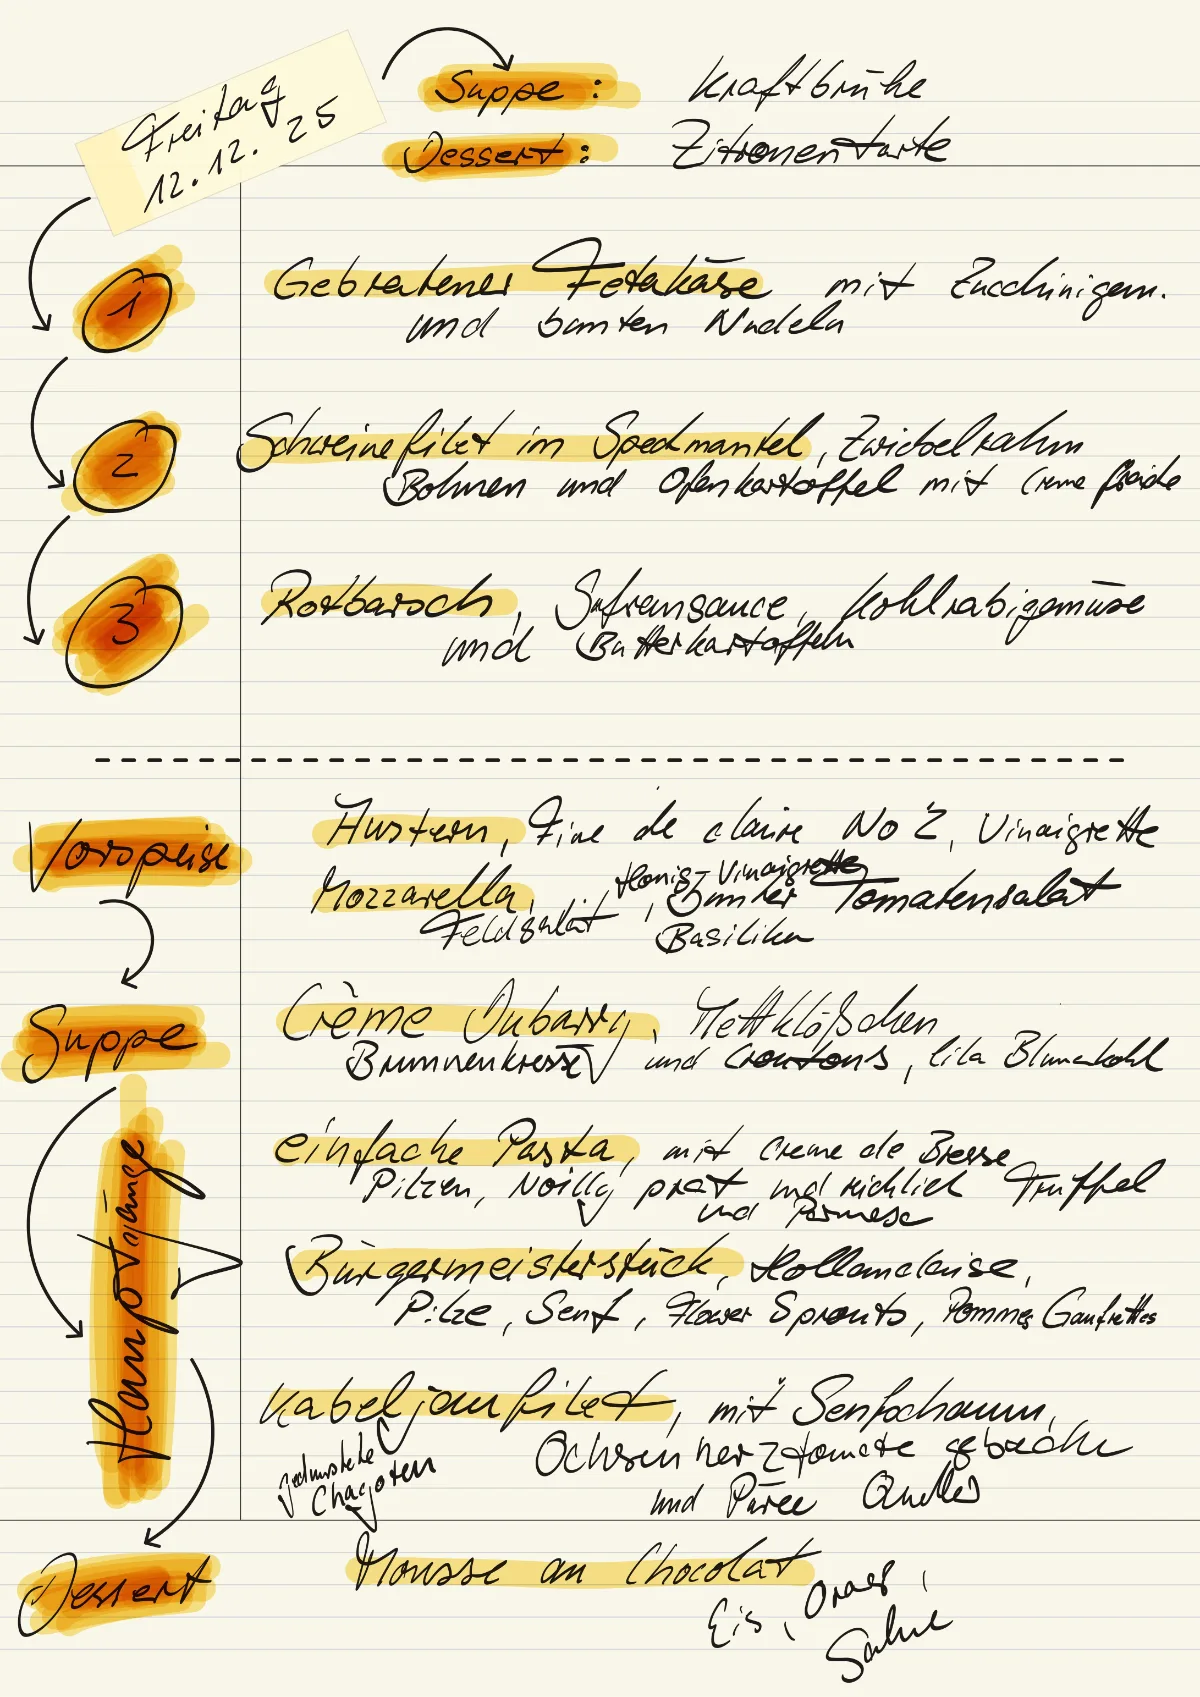 Freitag
12.12.25
Suppe: Kraftbrühe
Dessert: Zitronentarte
1 Gebratener Fetakäse mit Zucchinigem.
und bunten Nudeln
2 Schweinefilet im Speckmantel, Zwiebelrahm
Bohnen und Ofenkartoffel mit Creme fraiche
3 Rotbarsch, Safransauce, Kohlrabigemüse
und Butterkartoffeln
Vorspeise
Austern, Fine de claire No 2, Vinaigrette
Honig-Vinaigrette
Mozzarella, , bunter Tomatensalat
Feldsalat Basilikum
Suppe
Crème Dubarry, Mettklößchen
Brunnenkresse und Croutons, lila Blumenkohl
Hauptgänge
einfache Pasta, mit Creme de Bresse
Pilzen, Noilly prat und reichlich Trüffel
und Parmesan
Bürgermeisterstück, Hollandaise,
Pilze, Senf, Flower Sprouts, Pommes Gaufrettes
Kabeljaufilet, mit Senfschaum,
Ochsenherztomate gebacken
und Püree Queller
Dessert
Mousse au Chocolat
Eis, ,
Sahne